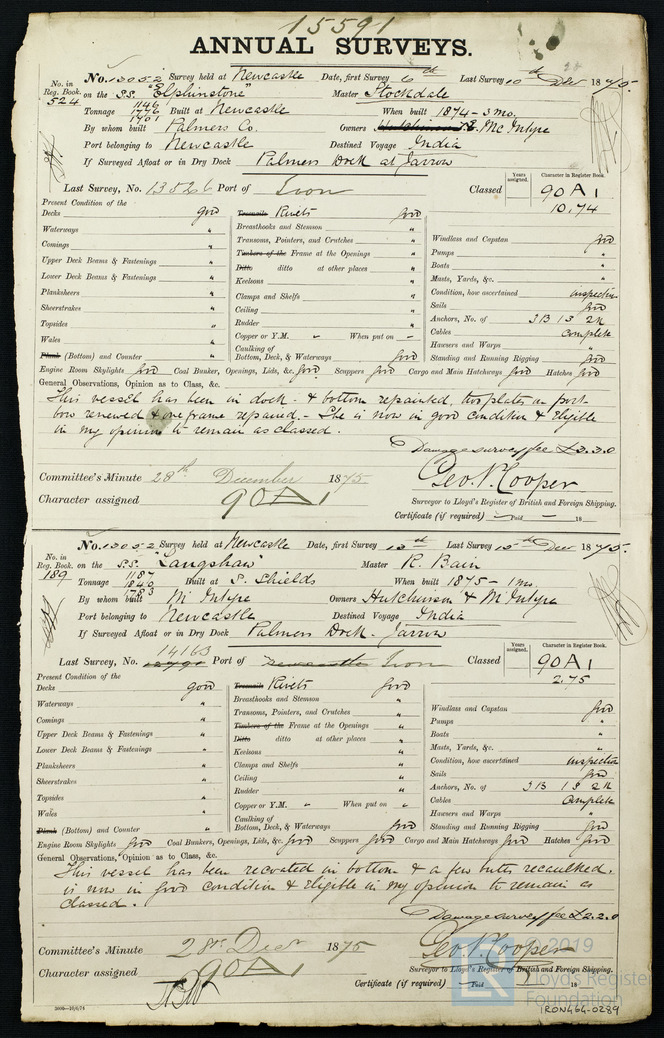 15591
ANNUAL SURVEYS.
No. 13052 Survey held at Newcastle Date, first Survey 6th Last Survey 10th Dec 1875.
No. in Reg. Book. 524 on the S.S. "Elphinstone" Master Stockdale
Tonnage 1146 1776 1701 Built at Newcastle When built 1874 - 3 mo.
By whom built Palmers Co. Owners McIntype
Port belonging to Newcastle Destined Voyage India
If Surveyed Afloat or in Dry Dock Palmers Dock at Jarrow
Last Survey, No. 13526 Port of Iron Classed Years assigned. Character in Register Book. 90A1 10.74
Present Condition of the
Decks good Treenails Rivets good
Waterways " Breasthooks and Stemson " Windlass and Capstan good
Comings " Transoms, Pointers, and Crutches " Pumps "
Upper Deck Beams & Fastenings " Timbers of the Frame at the Openings " Boats "
Lower Deck Beams & Fastenings " Ditto ditto at other places " Masts, Yards, &c. "
Planksheers " Keelsons " Condition, how ascertained inspection
Sheerstrakes " Clamps and Shelfs " Sails good
Topsides " Ceiling " Anchors, No. of 3B 1S 2K
Wales " Rudder " Cables Complete
Plank (Bottom) and Counter " Copper or Y.M. " When put on - Hawsers and Warps "
Caulking of Bottom, Deck, & Waterways good Standing and Running Rigging good
Engine Room Skylights good Coal Bunker, Openings, Lids, &c. good Scuppers good Cargo and Main Hatchways good Hatches good
General Observations, Opinion as to Class, &c.
This vessel has been in dock & bottom repainted, two plates on port
bow renewed & one frame repaired. - She is now in good condition & Eligible
in my opinion to remain as classed.
Damage survey fee £3.3.0
Committee's Minute 28th December 1875 Geo. N. Cooper
Character assigned 90A1 Surveyor to Lloyd's Register of British and Foreign Shipping.
Certificate (if required) Paid 18
No. 13052 Survey held at Newcastle Date, first Survey 13th Last Survey 15th Dec 1875.
No. in Reg. Book. 189 on the S.S. "Langshaw" Master R. Bain
Tonnage 1187 1840 1783 Built at S. Shields When built 1875 - 1 mo.
By whom built McIntype Owners Hutchinson & McIntype
Port belonging to Newcastle Destined Voyage India
If Surveyed Afloat or in Dry Dock Palmers Dock - Jarrow
14163
Last Survey, No. Port of Newcastle Iron Classed Years assigned. Character in Register Book. 90A1 2.75
Present Condition of the
Decks good Treenails Rivets good
Waterways " Breasthooks and Stemson " Windlass and Capstan good
Comings " Transoms, Pointers, and Crutches " Pumps "
Upper Deck Beams & Fastenings " Timbers of the Frame at the Openings " Boats "
Lower Deck Beams & Fastenings " Ditto ditto at other places " Masts, Yards, &c. "
Planksheers " Keelsons " Condition, how ascertained inspection
Sheerstrakes " Clamps and Shelfs " Sails good
Topsides " Ceiling " Anchors, No. of 3B 1S 2K
Wales " Rudder " Cables Complete
Plank (Bottom) and Counter " Copper or Y.M. " When put on " Hawsers and Warps "
Caulking of Bottom, Deck, & Waterways good Standing and Running Rigging good
Engine Room Skylights good Coal Bunkers, Openings, Lids, &c. good Scuppers good Cargo and Main Hatchways good Hatches good
General Observations, Opinion as to Class, &c.
This vessel has been recoated in bottom & a few butts recaulked.
is now in good condition & Eligible in my opinion to remain as
classed.
Damage survey fee £2.2.0
Committee's Minute 28th Decr 1875 Geo. N. Cooper
Character assigned 90A1 Surveyor to Lloyd's Register of British and Foreign Shipping.
Certificate (if required) Paid 18
© 2019
Lloyd's Register
Foundation
IRON464-0289